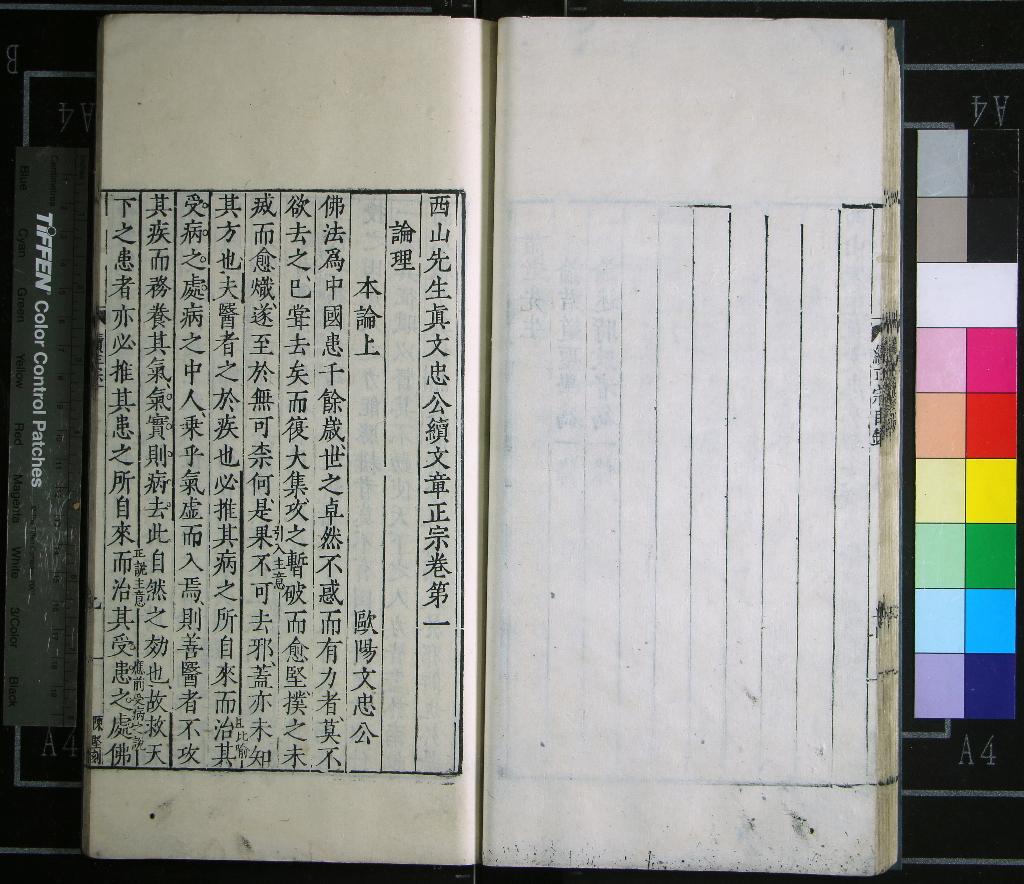 續正宗目錄
西山先生真文忠公續文章正宗卷第一
論理
本論上
歐陽文忠公
佛法爲中國患千餘歲世之卓然不惑而有力者莫不
欲去之已甞去矣而復大集攻之暫破而愈堅撲之未
滅而愈熾遂至於無可柰何是果不可去邪蓋亦未知
引入主意
其方也夫醫者之於疾也必推其病之所自來而治其
且比喻
受病之處病之中人乘乎氣虛而入焉則善醫者不攻
其疾而務養其氣氣實則病去此自然之効也故救天
下之患者亦必推其患之所自來而治其受患之處佛
正說主意
應前受病之說
陳堅刻
TIFFEN Color Control Patches
Centimetres
Blue
Cyan
Green
Yellow
Red
Magenta
White
3/Color
Black
B
A4
A4
A4
A4